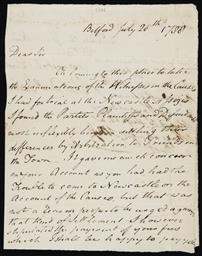 Belford July 20th 1790
Dear Sir
On coming to this place to take
the Examinations of the Witnesses in the Cause
I had for trial at the Newcastle
I found the Parties Plaintiff and Defendant
settling their
differences by Arbitration to Friends in
the Town. It gave me much concern
on your Account as you had had the
trouble to come to Newcastle on the
Account of the Cause, but that was
not a Reason proper to be urged against
that kind of Settlement I however
stipulated for payment of your fees
which I shall be happy to pay you